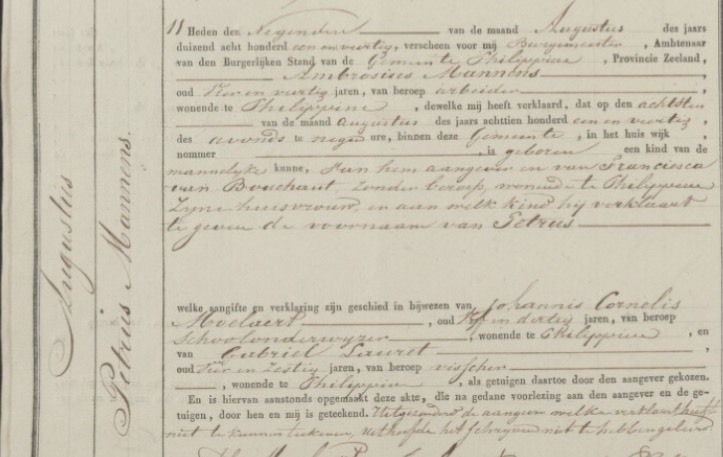 Augustus
Petrus Mannens.
11 Heden den Negenden van de maand Augustus des jaars
duizend acht honderd een en veertig, verscheen voor mij Burgemeester, Ambtenaar
van den Burgerlijken Stand van de Gemeente Philippine, Provincie Zeeland,
Ambrosius Mannens
oud Vier en veertig jaren, van beroep arbeider
wonende te Philippine, dewelke mij heeft verklaard, dat op den achtsten
van de maand Augustus des jaars achttien honderd een en veertig,
des avonds te negen ure, binnen deze Gemeente, in het huis wijk
nommer , is geboren een kind van de
mannelyke kunne, Aan hem aangever en van Franciesca
van Bouchaut, Zonder beroep, wonende te Philippine
Zyne huisvrouw, en aan welk kind hy verklaart
te geven de voornaam van Petrus
welke aangifte en verklaring zijn geschied in bijwezen van Johannis Cornelis
Moelaert, oud Vyf en dertig jaren, van beroep
Schoolonderwyzer, wonende te Philippine, en
van Gabriel Lauret
oud Vier en Zestig jaren, van beroep visscher
, wonende te Philippine, als getuigen daartoe door den aangever gekozen.
En is hiervan aanstonds opgemaakt deze akte, die na gedane voorlezing aan den aangever en de ge-
tuigen, door hen en mij is geteekend. Uitgezonderd de aangever welke verklaart heeft
niet te kunnen teekenen, uit hoofde het schryven niet te hebben geleerd.